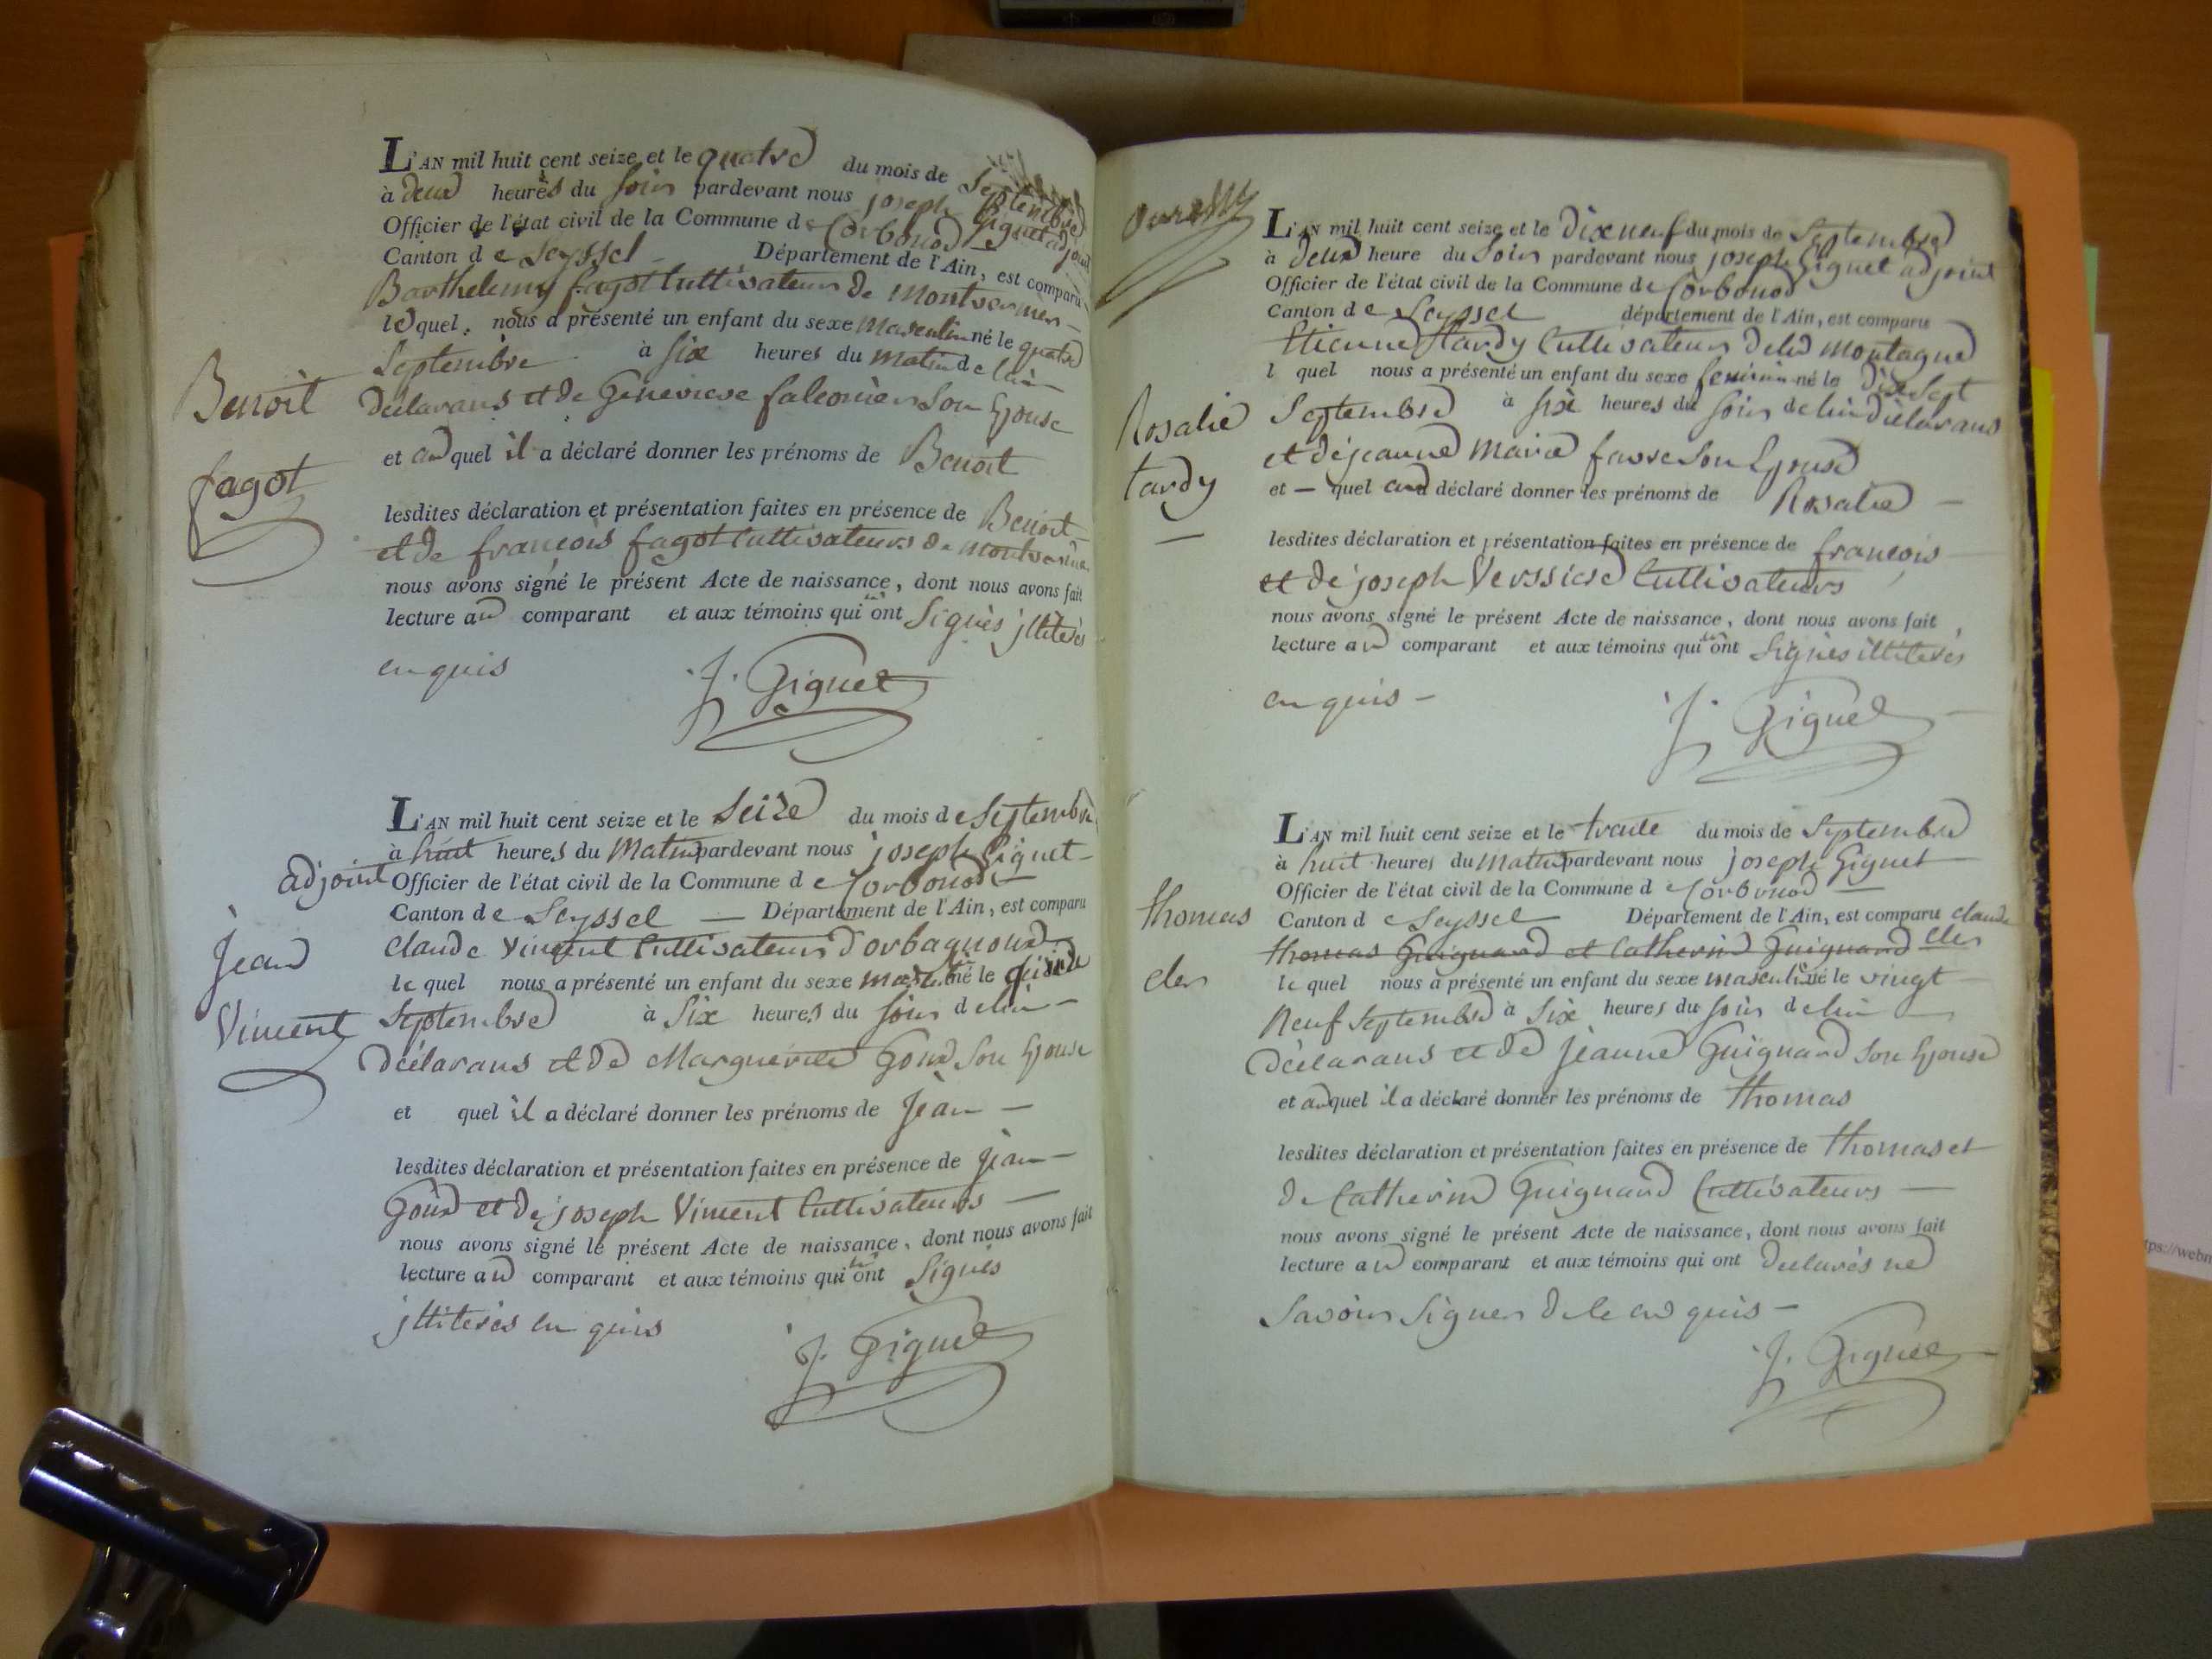 L'AN mil huit cent seize et le quatre du mois de Septembre
à deux heures du soir pardevant nous joseph Giguet adjoint
Officier de l'état civil de la Commune de Corbonod
Canton de Seyssel Département de l'Ain, est comparu
Barthelemy fagot Cultivateur de
lequel nous a présenté un enfant du sexe masculin né le quatre
Septembre à six heures du matin de lui
déclarans et de Genevieve falconier son Epouse
Benoit
et auquel il a déclaré donner les prénoms de Benoit
fagot
lesdites déclaration et présentation faites en présence de Benoit
et de françois fagot Cultivateurs de
nous avons signé le présent Acte de naissance, dont nous avons fait
lecture au comparant et aux témoins qui n'ont Signés jlliterés
en quis
J. Giguet
L'AN mil huit cent seize et le Seize du mois de Septembre
à huit heures du Matin pardevant nous joseph Giguet
adjoint Officier de l'état civil de la Commune de Corbonod
Canton de Seyssel Département de l'Ain, est comparu
Jean
claude Vincent Cultivateur d'orbagnoux
lequel nous a présenté un enfant du sexe né le
Vincent
Septembre à Six heures du soir de lui
déclarans et de Marguerite Goux son Epouse
et quel il a déclaré donner les prénoms de Jean
lesdites déclaration et présentation faites en présence de jean
Goux et de joseph Vincent Cultivateurs
nous avons signé le présent Acte de naissance, dont nous avons fait
lecture au comparant et aux témoins qui n'ont Signés
jlliterés en quis
J. Giguet
L'AN mil huit cent seize et le Dixneuf du mois de Septembre
à deux heure du Soir pardevant nous joseph Giguet adjoint
Officier de l'état civil de la Commune de Corbonod
Canton de Seyssel département de l'Ain, est comparu
Etienne tardy Cultivateur de la montagne
l quel nous a présenté un enfant du sexe feminin né le dix Sept
Rosalie
Septembre à six heures du soir de lui déclarans
et de jeanne Marie favre son Epouse
tardy
et — quel a déclaré donner les prénoms de Rosalie —
lesdites déclaration et présentation faites en présence de françois
et de joseph Cultivateurs
nous avons signé le présent Acte de naissance, dont nous avons fait
lecture au comparant et aux témoins qui n'ont Signés illiterés
en quis —
J. Giguet
L'AN mil huit cent seize et le trente du mois de Septembre
à huit heures du matin pardevant nous joseph Giguet
Officier de l'état civil de la Commune de Corbonod
thomas
Canton de Seyssel Département de l'Ain, est comparu claude
thomas Guignard et Catherine Guignard cler
cler
lequel nous a présenté un enfant du sexe masculin né le vingt
Neuf Septembre à Six heures du soir de lui
déclarans et de jeanne Guignard son Epouse
et auquel il a déclaré donner les prénoms de thomas
lesdites déclaration et présentation faites en présence de thomas et
de Catherine Guignard Cultivateurs —
nous avons signé le présent Acte de naissance, dont nous avons fait
lecture au comparant et aux témoins qui ont declarés ne
Savoir Signer de le en quis —
J. Giguet